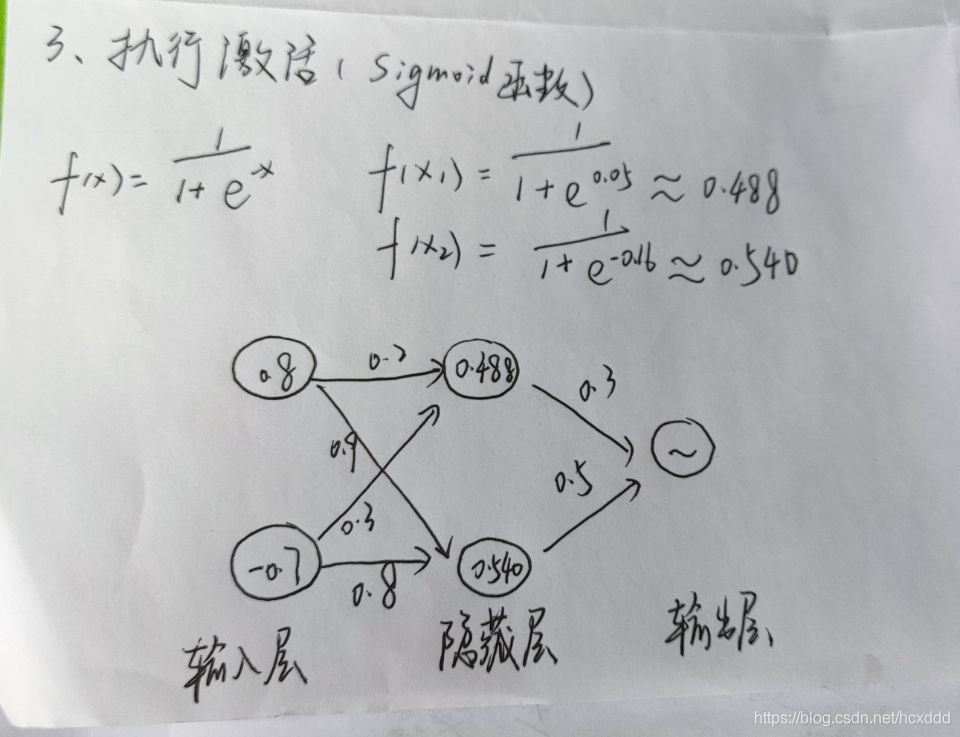 3、执行激活(Sigmoid函数)
f(x) = 1/(1+e^-x) f(x₁) = 1/(1+e^0.05) ≈ 0.488
f(x₂) = 1/(1+e^-0.16) ≈ 0.540
0.8 0.2 0.488 0.3
0.9 ~
0.3 0.5
-0.7 0.8 0.540
输入层 隐藏层 输出层
https://blog.csdn.net/hcxddd